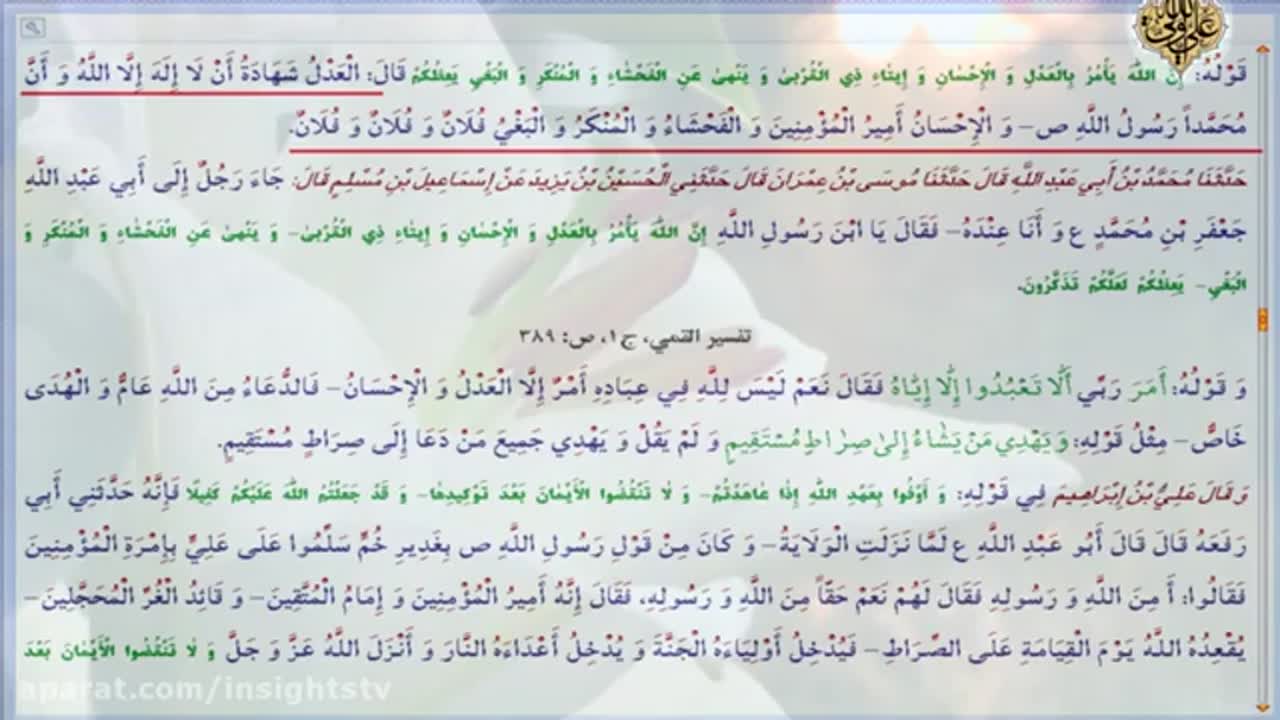 قَوْلُهُ: إِنَّ اللَّهَ يَأْمُرُ بِالْعَدْلِ وَ الْإِحْسَانِ وَ إِيتَاءِ ذِي الْقُرْبى وَ يَنْهى عَنِ الْفَحْشَاءِ وَ الْمُنْكَرِ وَ الْبَغْيِ يَعِظُكُمْ قَالَ: الْعَدْلُ شَهَادَةُ أَنْ لَا إِلَهَ إِلَّا اللَّهُ وَ أَنَّ
مُحَمَّداً رَسُولُ اللَّهِ ص- وَ الْإِحْسَانُ أَمِيرُ الْمُؤْمِنِينَ وَ الْفَحْشَاءُ وَ الْمُنْكَرُ وَ الْبَغْيُ فُلَانٌ وَ فُلَانٌ وَ فُلَانٌ.
حَدَّثَنَا مُحَمَّدُ بْنُ أَبِي عَبْدِ اللَّهِ قَالَ حَدَّثَنَا مُوسَى بْنُ عِمْرَانَ قَالَ حَدَّثَنِي الْحُسَيْنُ بْنُ يَزِيدَ عَنْ إِسْمَاعِيلَ بْنِ مُسْلِمٍ قَالَ: جَاءَ رَجُلٌ إِلَى أَبِي عَبْدِ اللَّهِ
جَعْفَرِ بْنِ مُحَمَّدٍ ع وَ أَنَا عِنْدَهُ- فَقَالَ يَا ابْنَ رَسُولِ اللَّهِ إِنَّ اللَّهَ يَأْمُرُ بِالْعَدْلِ وَ الْإِحْسَانِ وَ إِيتَاءِ ذِي الْقُرْبى- وَ يَنْهى عَنِ الْفَحْشَاءِ وَ الْمُنْكَرِ وَ
الْبَغْيِ- يَعِظُكُمْ لَعَلَّكُمْ تَذَكَّرُونَ.
تفسير القمي، ج۱، ص: ۳۸۹
وَ قَوْلُهُ: أَمَرَ رَبِّي أَلَّا تَعْبُدُوا إِلَّا إِيَّاهُ فَقَالَ نَعَمْ لَيْسَ لِلَّهِ فِي عِبَادِهِ أَمْرٌ إِلَّا الْعَدْلُ وَ الْإِحْسَانُ- فَالدُّعَاءُ مِنَ اللَّهِ عَامٌّ وَ الْهُدَى
خَاصٌّ- مِثْلُ قَوْلِهِ: وَ يَهْدِي مَنْ يَشَاءُ إِلى صِرَاطٍ مُسْتَقِيمٍ وَ لَمْ يَقُلْ وَ يَهْدِي جَمِيعَ مَنْ دَعَا إِلَى صِرَاطٍ مُسْتَقِيمٍ.
وَ قَالَ عَلِيُّ بْنُ إِبْرَاهِيمَ فِي قَوْلِهِ: وَ أَوْفُوا بِعَهْدِ اللَّهِ إِذَا عَاهَدْتُمْ- وَ لَا تَنْقُضُوا الْأَيْمَانَ بَعْدَ تَوْكِيدِهَا- وَ قَدْ جَعَلْتُمُ اللَّهَ عَلَيْكُمْ كَفِيلًا فَإِنَّهُ حَدَّثَنِي أَبِي
رَفَعَهُ قَالَ قَالَ أَبُو عَبْدِ اللَّهِ ع لَمَّا نَزَلَتِ الْوَلَايَةُ- وَ كَانَ مِنْ قَوْلِ رَسُولِ اللَّهِ ص بِغَدِيرِ خُمٍّ سَلِّمُوا عَلَى عَلِيٍّ بِإِمْرَةِ الْمُؤْمِنِينَ
فَقَالُوا: أَ مِنَ اللَّهِ وَ رَسُولِهِ فَقَالَ لَهُمْ نَعَمْ حَقّاً مِنَ اللَّهِ وَ رَسُولِهِ، فَقَالَ إِنَّهُ أَمِيرُ الْمُؤْمِنِينَ وَ إِمَامُ الْمُتَّقِينَ- وَ قَائِدُ الْغُرِّ الْمُحَجَّلِينَ-
يُقْعِدُهُ اللَّهُ يَوْمَ الْقِيَامَةِ عَلَى الصِّرَاطِ- فَيُدْخِلُ أَوْلِيَاءَهُ الْجَنَّةَ وَ يُدْخِلُ أَعْدَاءَهُ النَّارَ وَ أَنْزَلَ اللَّهُ عَزَّ وَ جَلَّ وَ لَا تَنْقُضُوا الْأَيْمَانَ بَعْدَ
aparat.com/insightstv